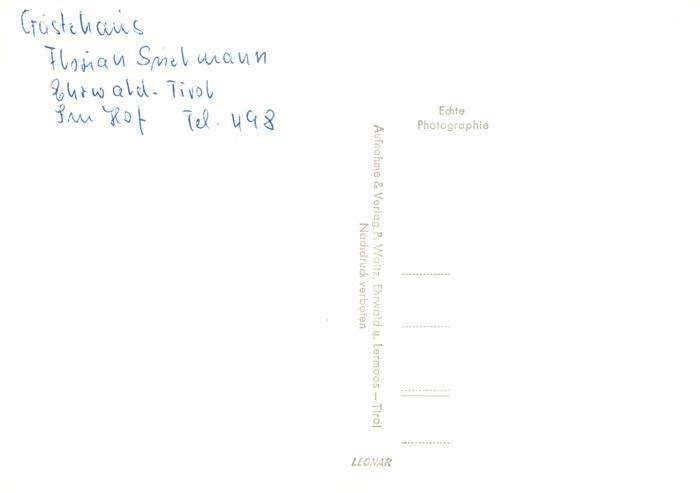 Gästehaus
Florian Spielmann
Ehrwald - Tirol
Im Hof Tel. 498
Echte
Photographie
Aufnahme & Verlag P. Waitz, Ehrwald u. Lermoos – Tirol
Nachdruck verboten
LEONAR